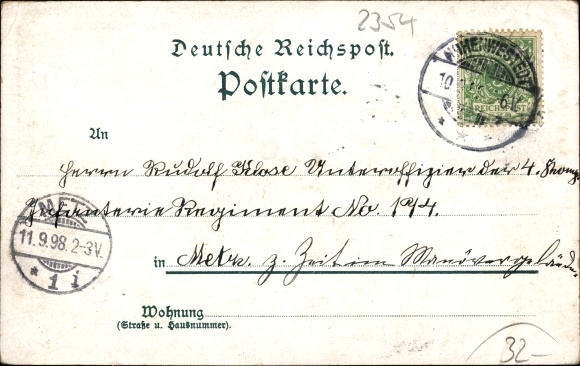 2354
Deutsche Reichspost.
Postkarte.
HOHENWESTEDT
10
REICHSPOST
An
Herrn Rudolf Klose Unteroffizier der 4. Komp.
Infanterie Regiment No. 174.
METZ
11.9.98.2-3V.
* 1 i
in Metz. z. Zeit im Manövergelände
Wohnung
(Straße u. Hausnummer).
32-